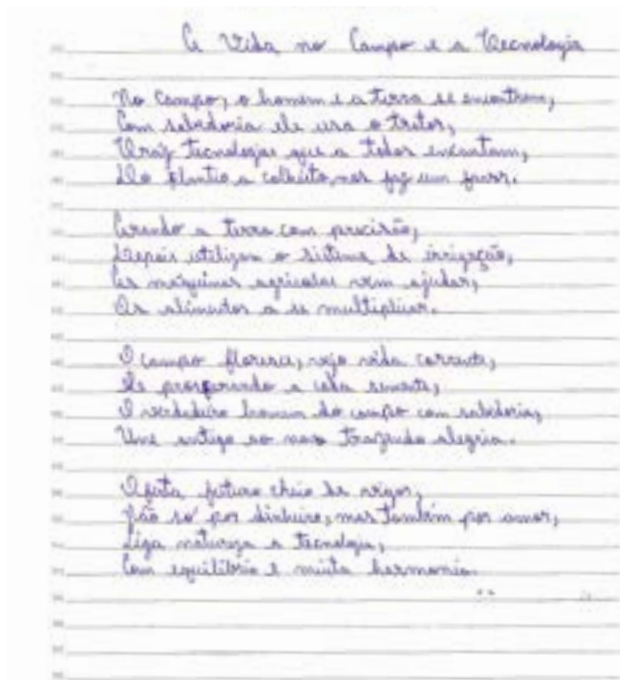 A Vida no Campo e a Tecnologia
No campo, o homem e a terra se encontram,
Com sabedoria ele usa o trator,
Traz tecnologias que a todos encantam,
Do plantio a colheita, nos faz um favor.
a terra com precisão,
Depois utilizam o sistema de irrigação,
As máquinas agrícolas vem ajudar,
Os alimentos a se multiplicar.
O campo floresce, vejo vida corrente,
prosperando a cada semente,
O verdadeiro homem do campo com sabedoria,
Une antigo ao novo trazendo alegria.
futuro cheio de vigor,
Não só por dinheiro, mas também por amor,
Liga natureza a tecnologia,
Com equilíbrio e muita harmonia.